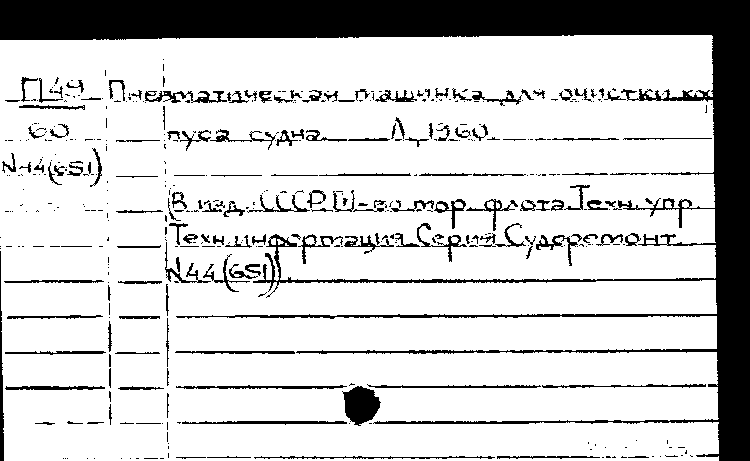 П 49 Пневматическая машинка для очистки кор
60 пуса судна. Л, 1960.
N44(651)
(В изд.: СССР. М-во мор. флота. Техн. упр.
Техн. информация. Серия Судоремонт.
N44 (651)).